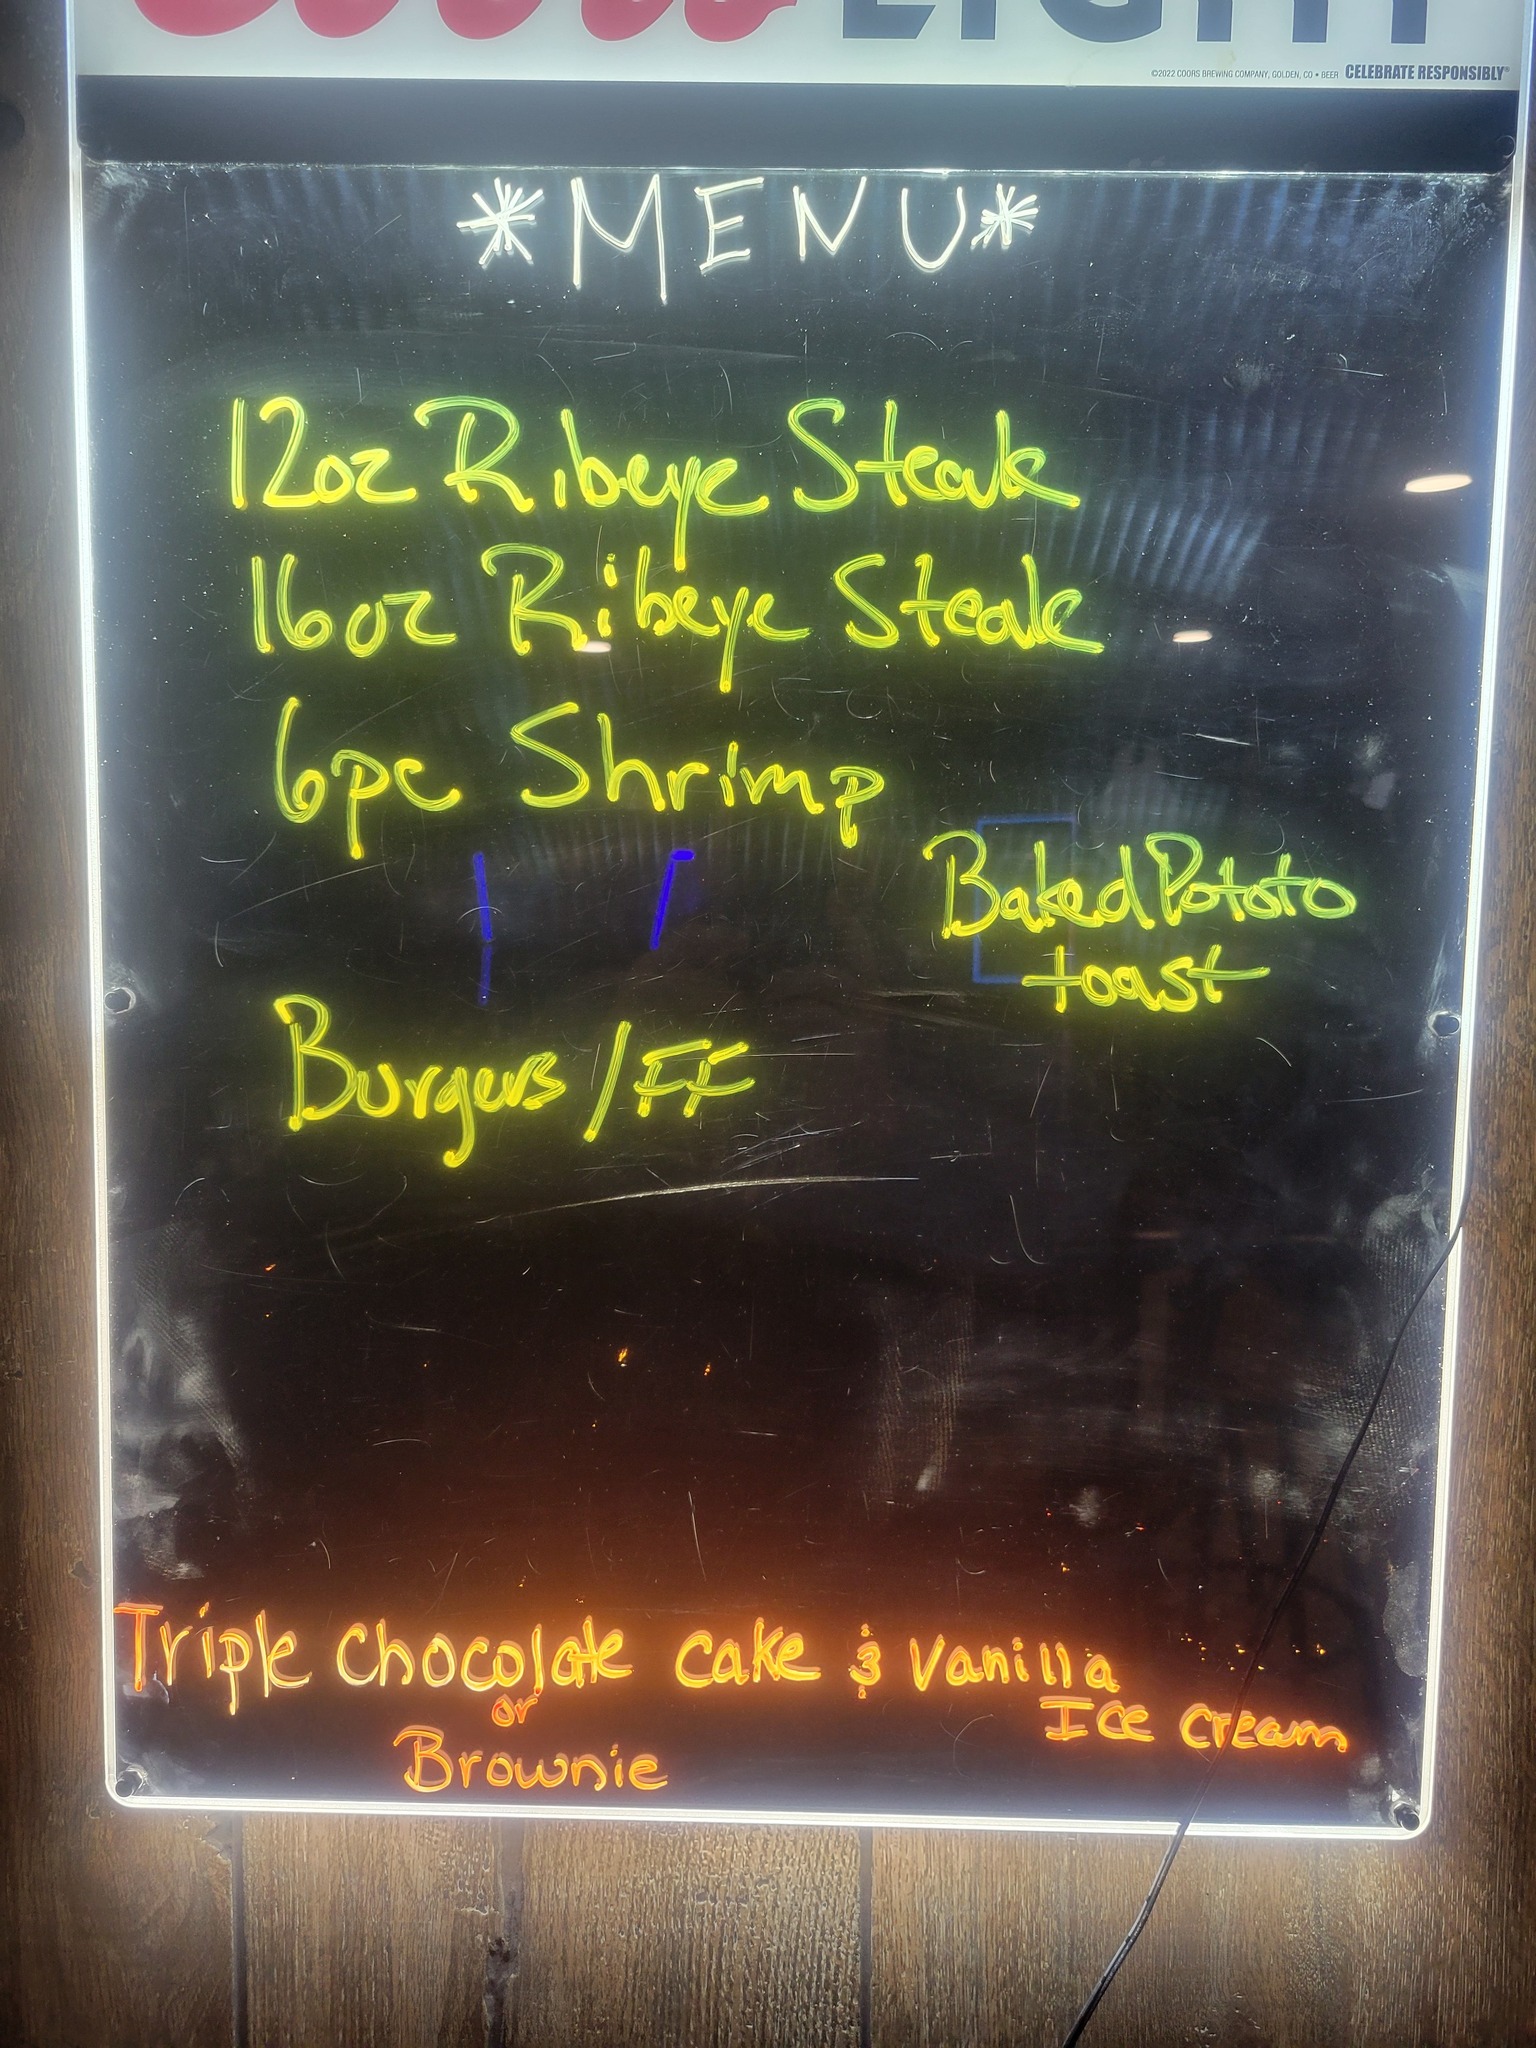 Coors LIGHT
©2022 COORS BREWING COMPANY, GOLDEN, CO • BEER CELEBRATE RESPONSIBLY®
*MENU*
12oz Ribeye Steak
16oz Ribeye Steak
6pc Shrimp
Baked Pototo
toast
Burgers/FF
Triple Chocolate Cake & Vanilla
Ice Cream
or
Brownie